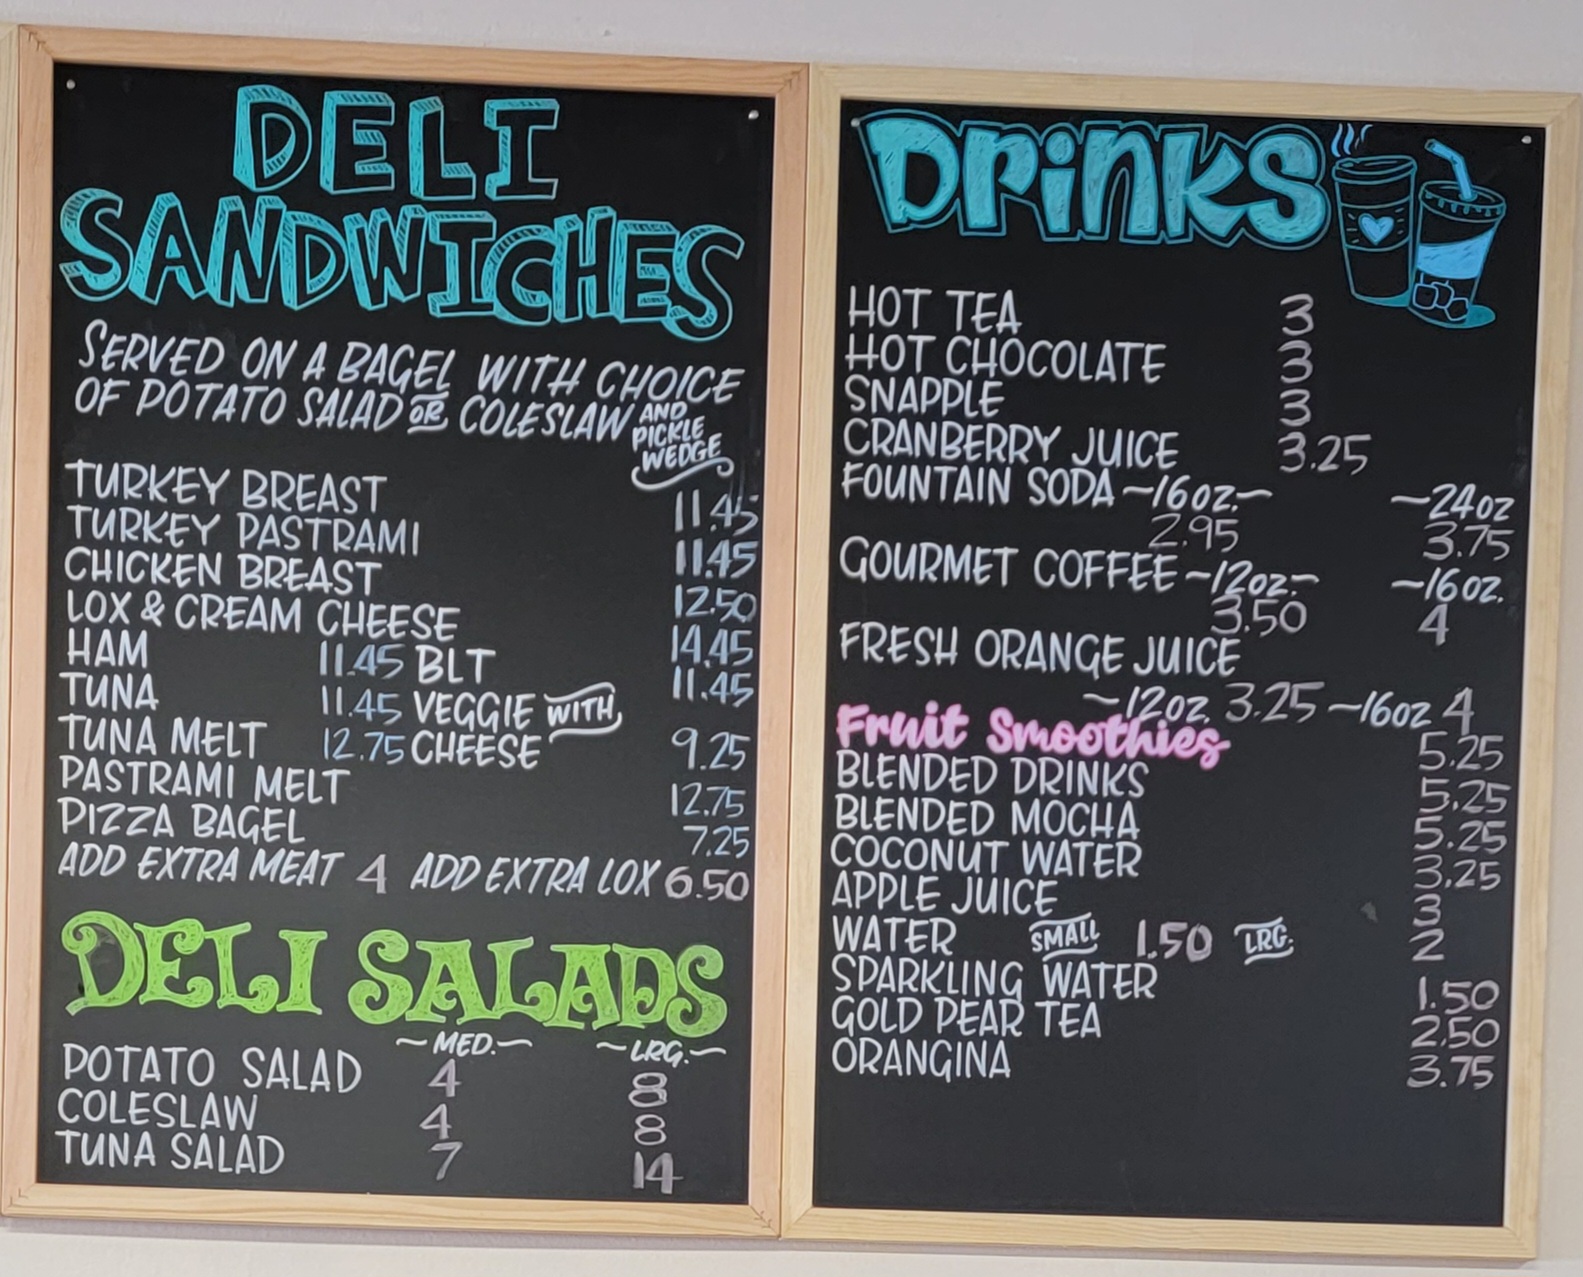 DELI
SANDWICHES
SERVED ON A BAGEL WITH CHOICE
OF POTATO SALAD OR COLESLAW AND
PICKLE
WEDGE
TURKEY BREAST 11.45
TURKEY PASTRAMI 11.45
CHICKEN BREAST 12.50
LOX & CREAM CHEESE 14.45
HAM 11.45 BLT 11.45
TUNA 11.45 VEGGIE WITH
TUNA MELT 12.75 CHEESE 9.25
PASTRAMI MELT 12.75
PIZZA BAGEL 7.25
ADD EXTRA MEAT 4 ADD EXTRA LOX 6.50
DELI SALADS
~MED.~ ~LRG.~
POTATO SALAD 4 8
COLESLAW 4 8
TUNA SALAD 7 14
Drinks
HOT TEA 3
HOT CHOCOLATE 3
SNAPPLE 3
CRANBERRY JUICE 3.25
FOUNTAIN SODA ~16oz.~ ~24oz
2.95 3.75
GOURMET COFFEE ~12oz.~ ~16oz.
3.50 4
FRESH ORANGE JUICE
~12oz. 3.25 ~16oz 4
Fruit Smoothies 5.25
BLENDED DRINKS 5.25
BLENDED MOCHA 5.25
COCONUT WATER 3.25
APPLE JUICE 3
WATER SMALL 1.50 LRG. 2
SPARKLING WATER 1.50
GOLD PEAR TEA 2.50
ORANGINA 3.75